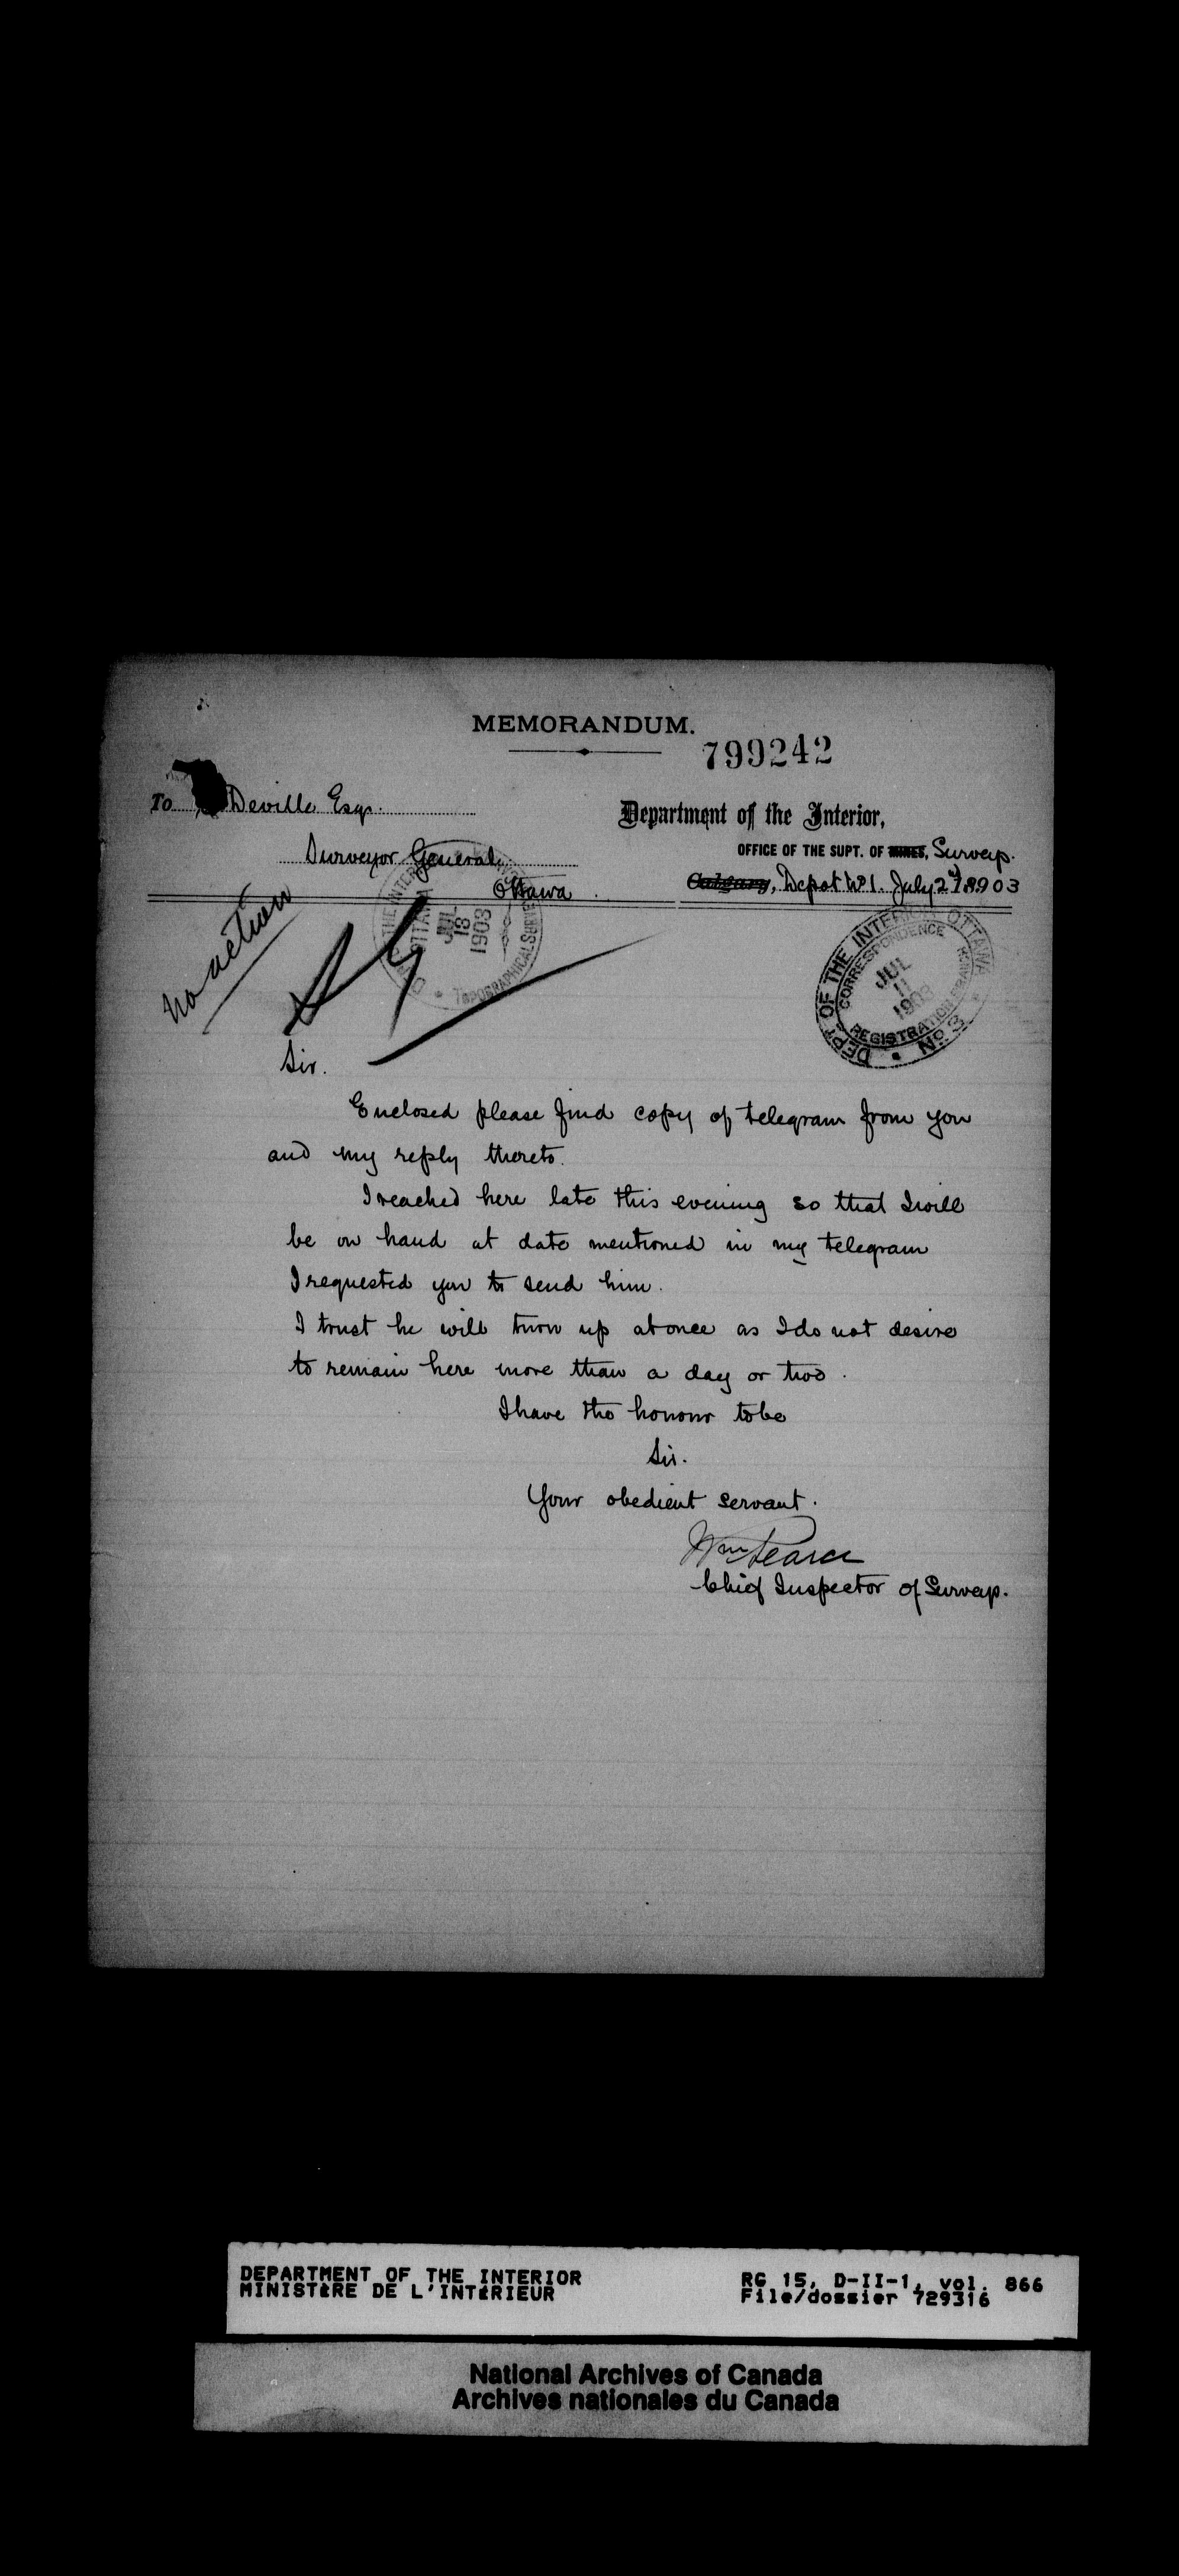 MEMORANDUM.
799242
To Deville Esqr.
Surveyor General
Ottawa
Department of the Interior,
OFFICE OF THE SUPT. OF MINES, Surveys.
Calgary, Depot No 1. July 2nd 1903
No action
DEPT OF THE INTERIOR OTTAWA
CORRESPONDENCE
JUL
11
1903
REGISTRATION BRANCH
No 3
JUL
13
1903
TOPOGRAPHICAL SURVEYS
Sir.
Enclosed please find copy of telegram from you
and my reply thereto.
I reached here late this evening so that I will
be on hand at date mentioned in my telegram
I requested you to send him.
I trust he will turn up at once as I do not desire
to remain here more than a day or two.
I have the honour to be
Sir.
Your obedient servant.
Wm Pearce
Chief Inspector of Surveys.
DEPARTMENT OF THE INTERIOR
MINISTÈRE DE L'INTÉRIEUR
RG 15, D-II-1, vol. 866
File/dossier 729316
National Archives of Canada
Archives nationales du Canada